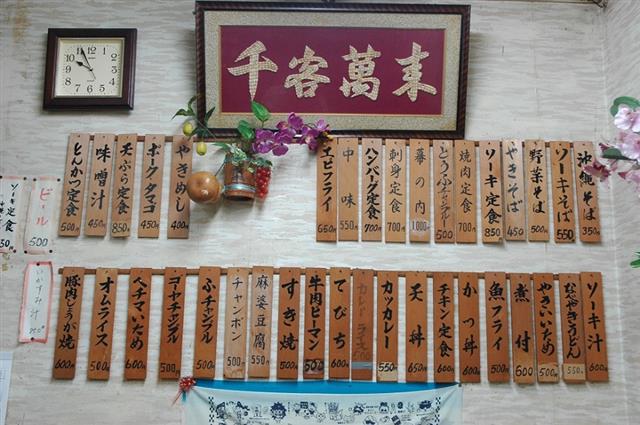 千客萬来
沖縄そば 350
ソーキそば 550
野菜そば 500
やきそば 450
ソーキ定食 850
焼肉定食 700
とうふチャンプル 500
幕の内 1000
刺身定食 700
ハンバーグ定食 700
中味 550
エビフライ 650
やきめし 400円
ポークタマゴ 450
天ぷら定食 850
味噌汁 450
とんかつ定食 500
ビール 500
ソーキ定食
ソーキ汁 600
なべやきうどん 550
やさいいため 500
煮付 600
魚フライ 500
かつ丼 600円
チキン定食 600円
天丼 650円
カツカレー 550
カレーライス 500
てびち 400円
牛肉ピーマン 500
すき焼 500
麻婆豆腐 550
チャンポン 500
ふチャンプル 500円
ゴーヤチャンプル 500円
ヘチマいため 600円
オムライス 500
豚肉しょうが焼 600円
いかすみ汁